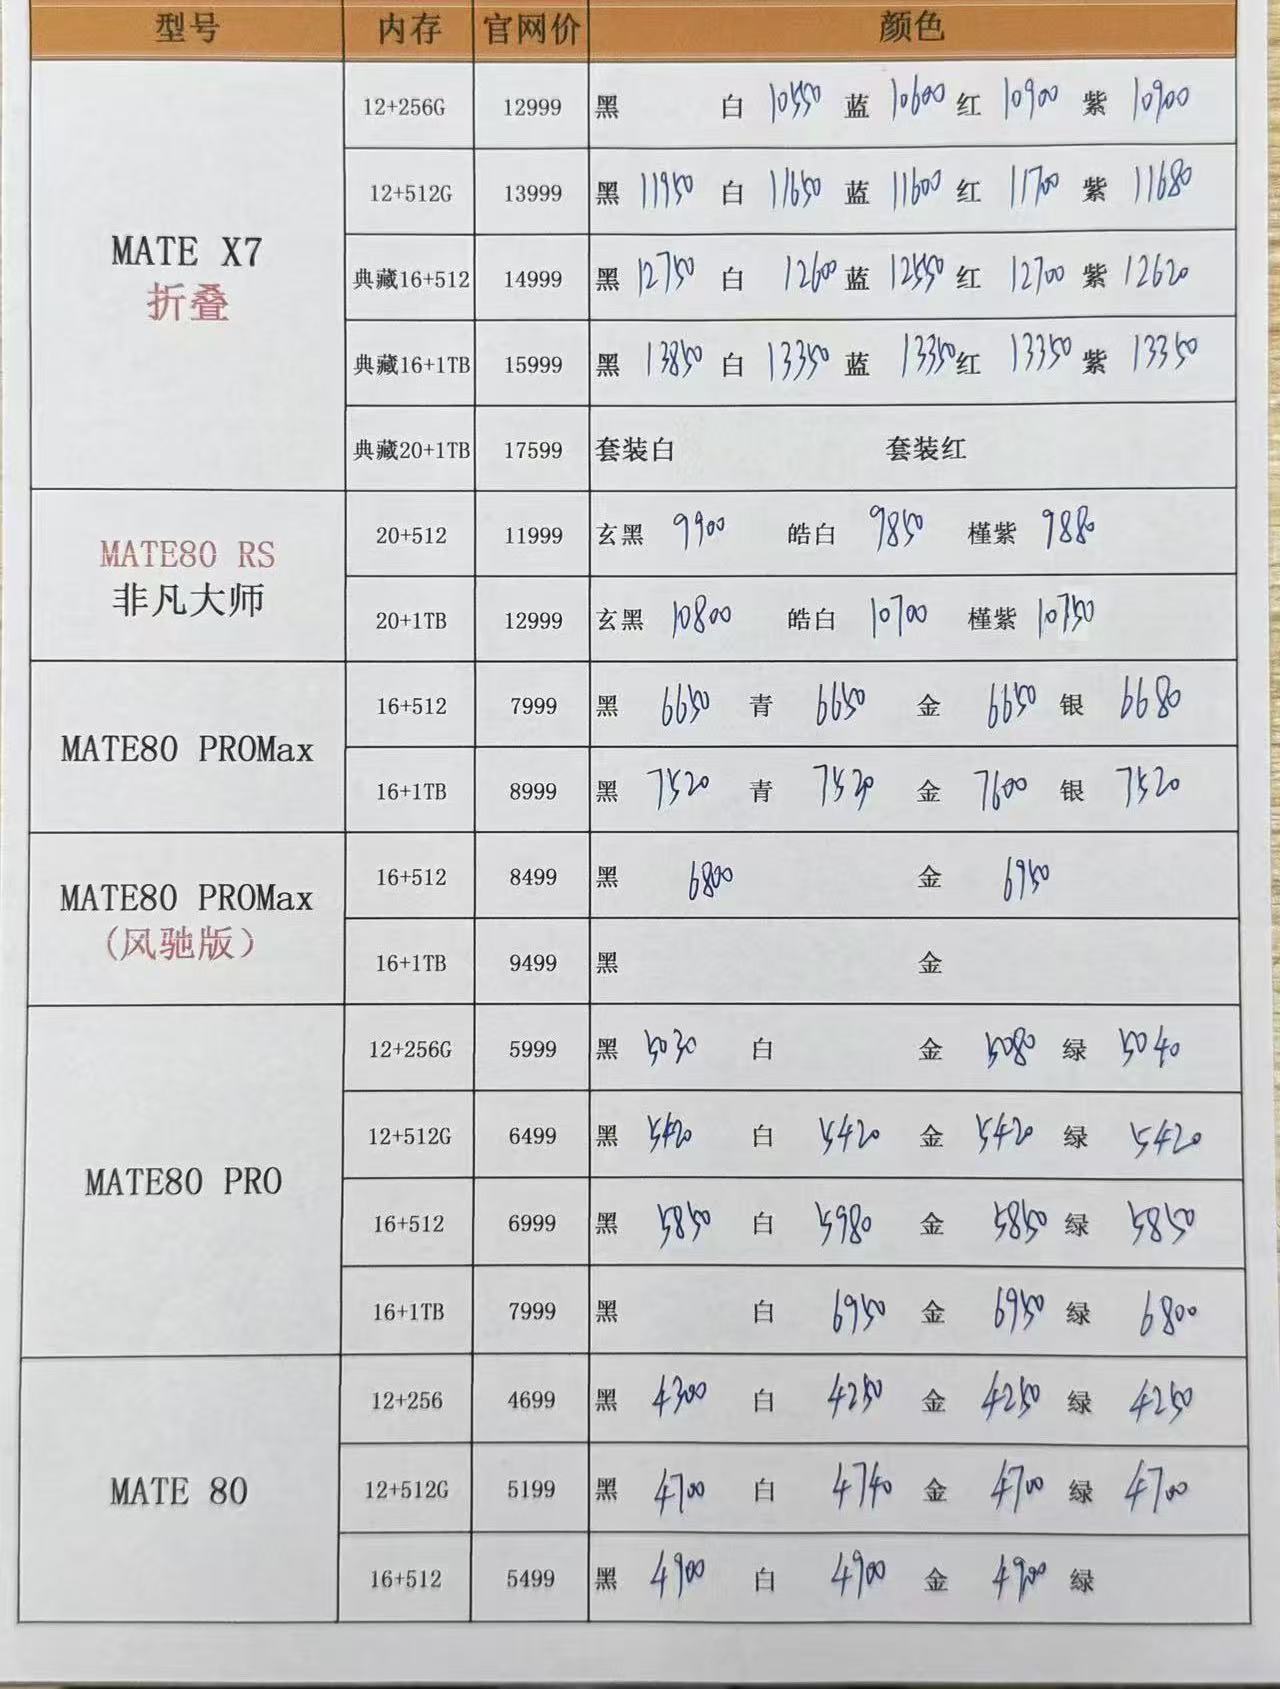 型号 内存 官网价 颜色
12+256G 12999 黑 白 10550 蓝 10600 红 10900 紫 10900
12+512G 13999 黑 11950 白 11650 蓝 11600 红 11700 紫 11680
MATE X7
折叠
典藏16+512 14999 黑 12750 白 12600 蓝 12550 红 12700 紫 12620
典藏16+1TB 15999 黑 13850 白 13350 蓝 13350 红 13350 紫 13350
典藏20+1TB 17599 套装白 套装红
MATE80 RS
非凡大师
20+512 11999 玄黑 9900 皓白 9850 槿紫 9880
20+1TB 12999 玄黑 10800 皓白 10700 槿紫 10750
MATE80 PROMax
16+512 7999 黑 6650 青 6650 金 6650 银 6680
16+1TB 8999 黑 7520 青 7520 金 7600 银 7520
MATE80 PROMax
(风驰版)
16+512 8499 黑 6800 金 6950
16+1TB 9499 黑 金
MATE80 PRO
12+256G 5999 黑 5030 白 金 5080 绿 5040
12+512G 6499 黑 5420 白 5420 金 5420 绿 5420
16+512 6999 黑 5850 白 5980 金 5850 绿 5850
16+1TB 7999 黑 白 6950 金 6950 绿 6800
MATE 80
12+256 4699 黑 4300 白 4250 金 4250 绿 4250
12+512G 5199 黑 4700 白 4740 金 4700 绿 4700
16+512 5499 黑 4900 白 4900 金 4900 绿